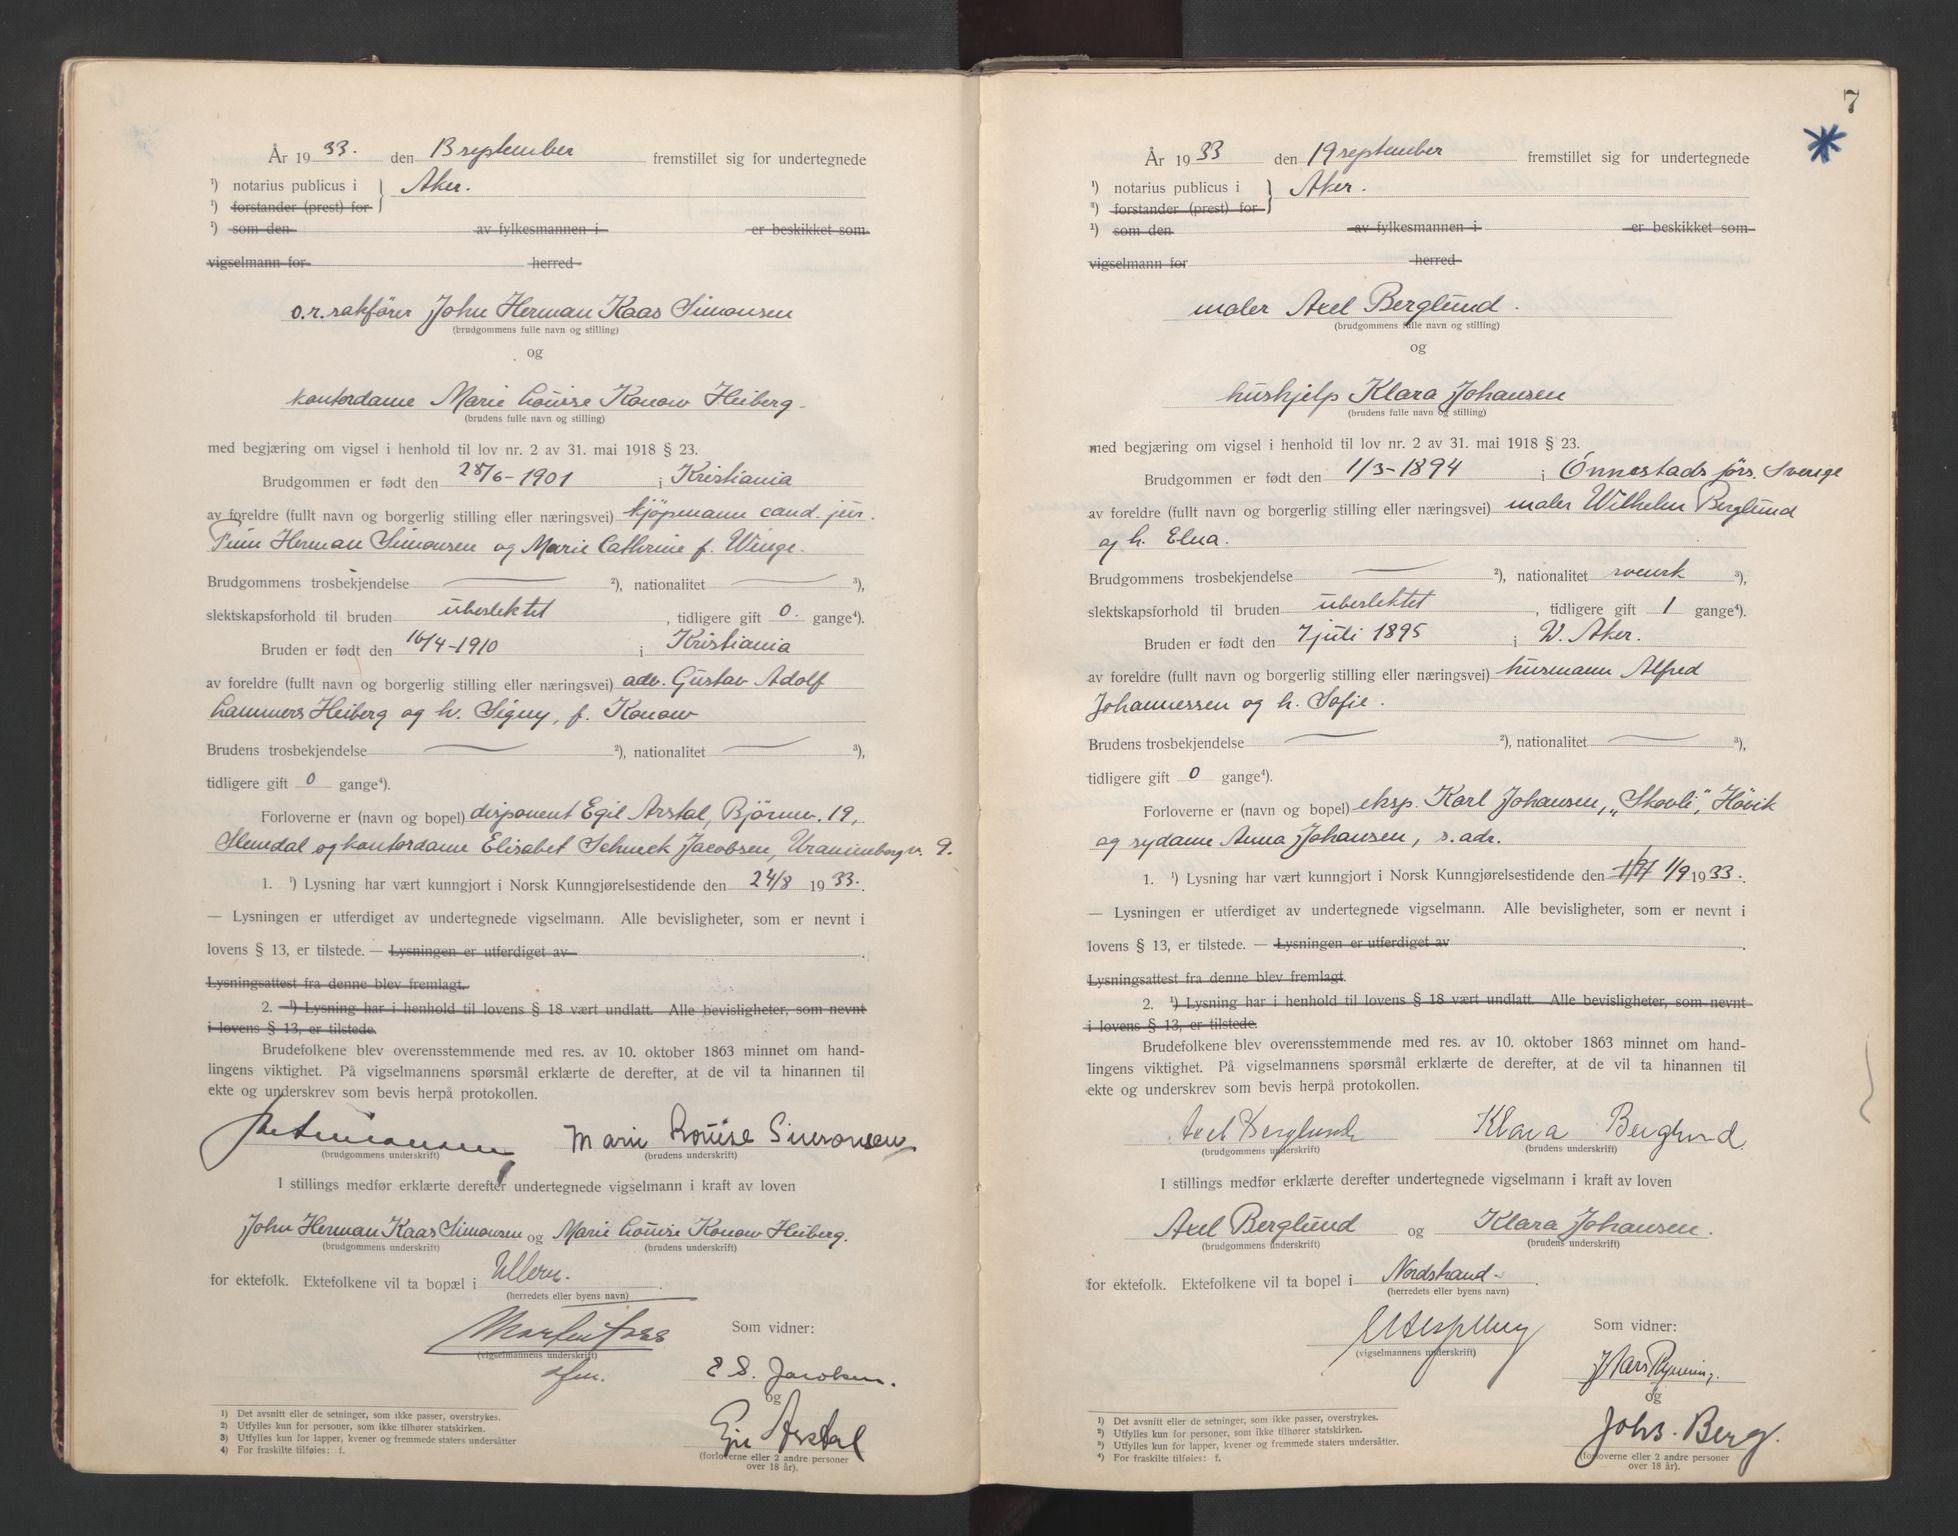 År 1933. den 13 september fremstillet sig for undertegnede
¹) notarius publicus i } Aker.
¹) forstander (prest) for
¹) som den av fylkesmannen i er beskikket som
vigselmann for herred
o.r.sakfører John Herman Kaas Simonsen
(brudgommens fulle navn og stilling)
og
kontordame Marie Louise Konow Heiberg.
(brudens fulle navn og stilling)
med begjæring om vigsel i henhold til lov nr. 2 av 31. mai 1918 § 23.
Brudgommen er født den 28/6-1901 i Kristiania
av foreldre (fullt navn og borgerlig stilling eller næringsvei) kjøpmann cand. jur.
Finn Herman Simonsen og Marie Cathrine f. Winge.
Brudgommens trosbekjendelse — ²), nationalitet — ³),
slektskapsforhold til bruden ubeslektet, tidligere gift 0. gange⁴).
Bruden er født den 16/4-1910 i Kristiania
av foreldre (fullt navn og borgerlig stilling eller næringsvei) adv. Gustav Adolf
Lammers Heiberg og h. Signy, f. Konow
Brudens trosbekjendelse — ²), nationalitet — ³),
tidligere gift 0 gange⁴).
Forloverne er (navn og bopel) disponent Egil Arstal, Bjørnv. 19,
Slemdal og kontordame Elisabet Schneck Jacobsen, Uranienborgv. 9.
1. ¹) Lysning har vært kunngjort i Norsk Kunngjørelsestidende den 24/8 1933.
— Lysningen er utferdiget av undertegnede vigselmann. Alle bevisligheter, som er nevnt i
lovens § 13, er tilstede. — Lysningen er utferdiget av
Lysningsattest fra denne blev fremlagt.
2. ¹) Lysning har i henhold til lovens § 18 vært undlatt. Alle bevisligheter, som nevnt
i lovens § 13, er tilstede.
Brudefolkene blev overensstemmende med res. av 10. oktober 1863 minnet om hand-
lingens viktighet. På vigselmannens spørsmål erklærte de derefter, at de vil ta hinannen til
ekte og underskrev som bevis herpå protokollen.
Marie Louise Simonsen
(brudgommens underskrift) (brudens underskrift)
I stillings medfør erklærte derefter undertegnede vigselmann i kraft av loven
John Herman Kaas Simonsen og Marie Louise Konow Heiberg.
(brudgommens underskrift) (brudens underskrift)
for ektefolk. Ektefolkene vil ta bopæl i Ullern.
(herredets eller byens navn)
Som vidner:
(vigselmannens underskrift)
E S. Jacobsen.
og
Egil Arstal
(forloverne eller 2 andre personer
over 18 år).
1) Det avsnitt eller de setninger, som ikke passer, overstrykes.
2) Utfylles kun for personer, som ikke tilhører statskirken.
3) Utfylles kun for lapper, kvener og fremmede staters undersåtter
4) For fraskilte tilføies: f.
7
År 1933 den 19 september fremstillet sig for undertegnede
¹) notarius publicus i } Aker.
¹) forstander (prest) for
¹) som den av fylkesmannen i er beskikket som
vigselmann for herred
maler Axel Berglund.
(brudgommens fulle navn og stilling)
og
hushjelp Klara Johansen
(brudens fulle navn og stilling)
med begjæring om vigsel i henhold til lov nr. 2 av 31. mai 1918 § 23.
Brudgommen er født den 1/3-1894 i Önnestads förs. Sverige
av foreldre (fullt navn og borgerlig stilling eller næringsvei) maler Wilhelm Berglund
og h. Elna.
Brudgommens trosbekjendelse — ²), nationalitet svensk ³),
slektskapsforhold til bruden ubeslektet, tidligere gift 1 gange⁴).
Bruden er født den 7 juli 1895 i V. Aker.
av foreldre (fullt navn og borgerlig stilling eller næringsvei) husmann Alfred
Johannessen og h. Sofie.
Brudens trosbekjendelse — ²), nationalitet — ³),
tidligere gift 0 gange⁴).
Forloverne er (navn og bopel) eksp. Karl Johansen, „Skovli", Høvik
og sydame Anna Johansen, s. adr.
1. ¹) Lysning har vært kunngjort i Norsk Kunngjørelsestidende den 1/9 1933.
— Lysningen er utferdiget av undertegnede vigselmann. Alle bevisligheter, som er nevnt i
lovens § 13, er tilstede. — Lysningen er utferdiget av
Lysningsattest fra denne blev fremlagt.
2. ¹) Lysning har i henhold til lovens § 18 vært undlatt. Alle bevisligheter, som nevnt
i lovens § 13, er tilstede.
Brudefolkene blev overensstemmende med res. av 10. oktober 1863 minnet om hand-
lingens viktighet. På vigselmannens spørsmål erklærte de derefter, at de vil ta hinannen til
ekte og underskrev som bevis herpå protokollen.
Axel Berglund Klara Berglund.
(brudgommens underskrift) (brudens underskrift)
I stillings medfør erklærte derefter undertegnede vigselmann i kraft av loven
Axel Berglund og Klara Johansen.
(brudgommens underskrift) (brudens underskrift)
for ektefolk. Ektefolkene vil ta bopel i Nordstrand.
(herredets eller byens navn)
Som vidner:
(vigselmannens underskrift)
og
Johs. Berg.
(forloverne eller 2 andre personer
over 18 år).
1) Det avsnitt eller de setninger, som ikke passer, overstrykes.
2) Utfylles kun for personer, som ikke tilhører statskirken.
3) Utfylles kun for lapper, kvener og fremmede staters undersåtter.
4) For fraskilte tilføies: f.